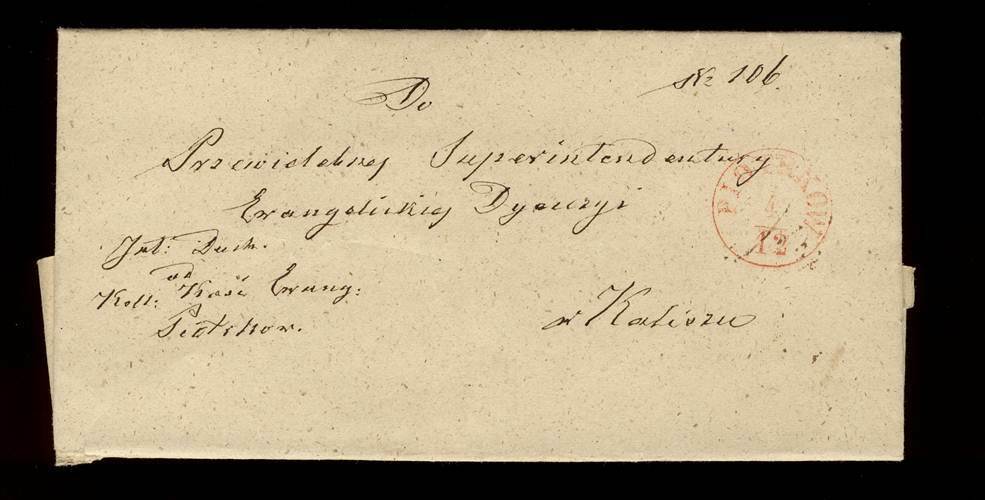 № 106.
Do
Przewielebnej Superintendentury
Ewangelickiej Dyecezyi
w Kaliszu
Int: Duch.
od
Koll: Kość Ewang:
Piotrkow.
PIOTRKOW
4
12